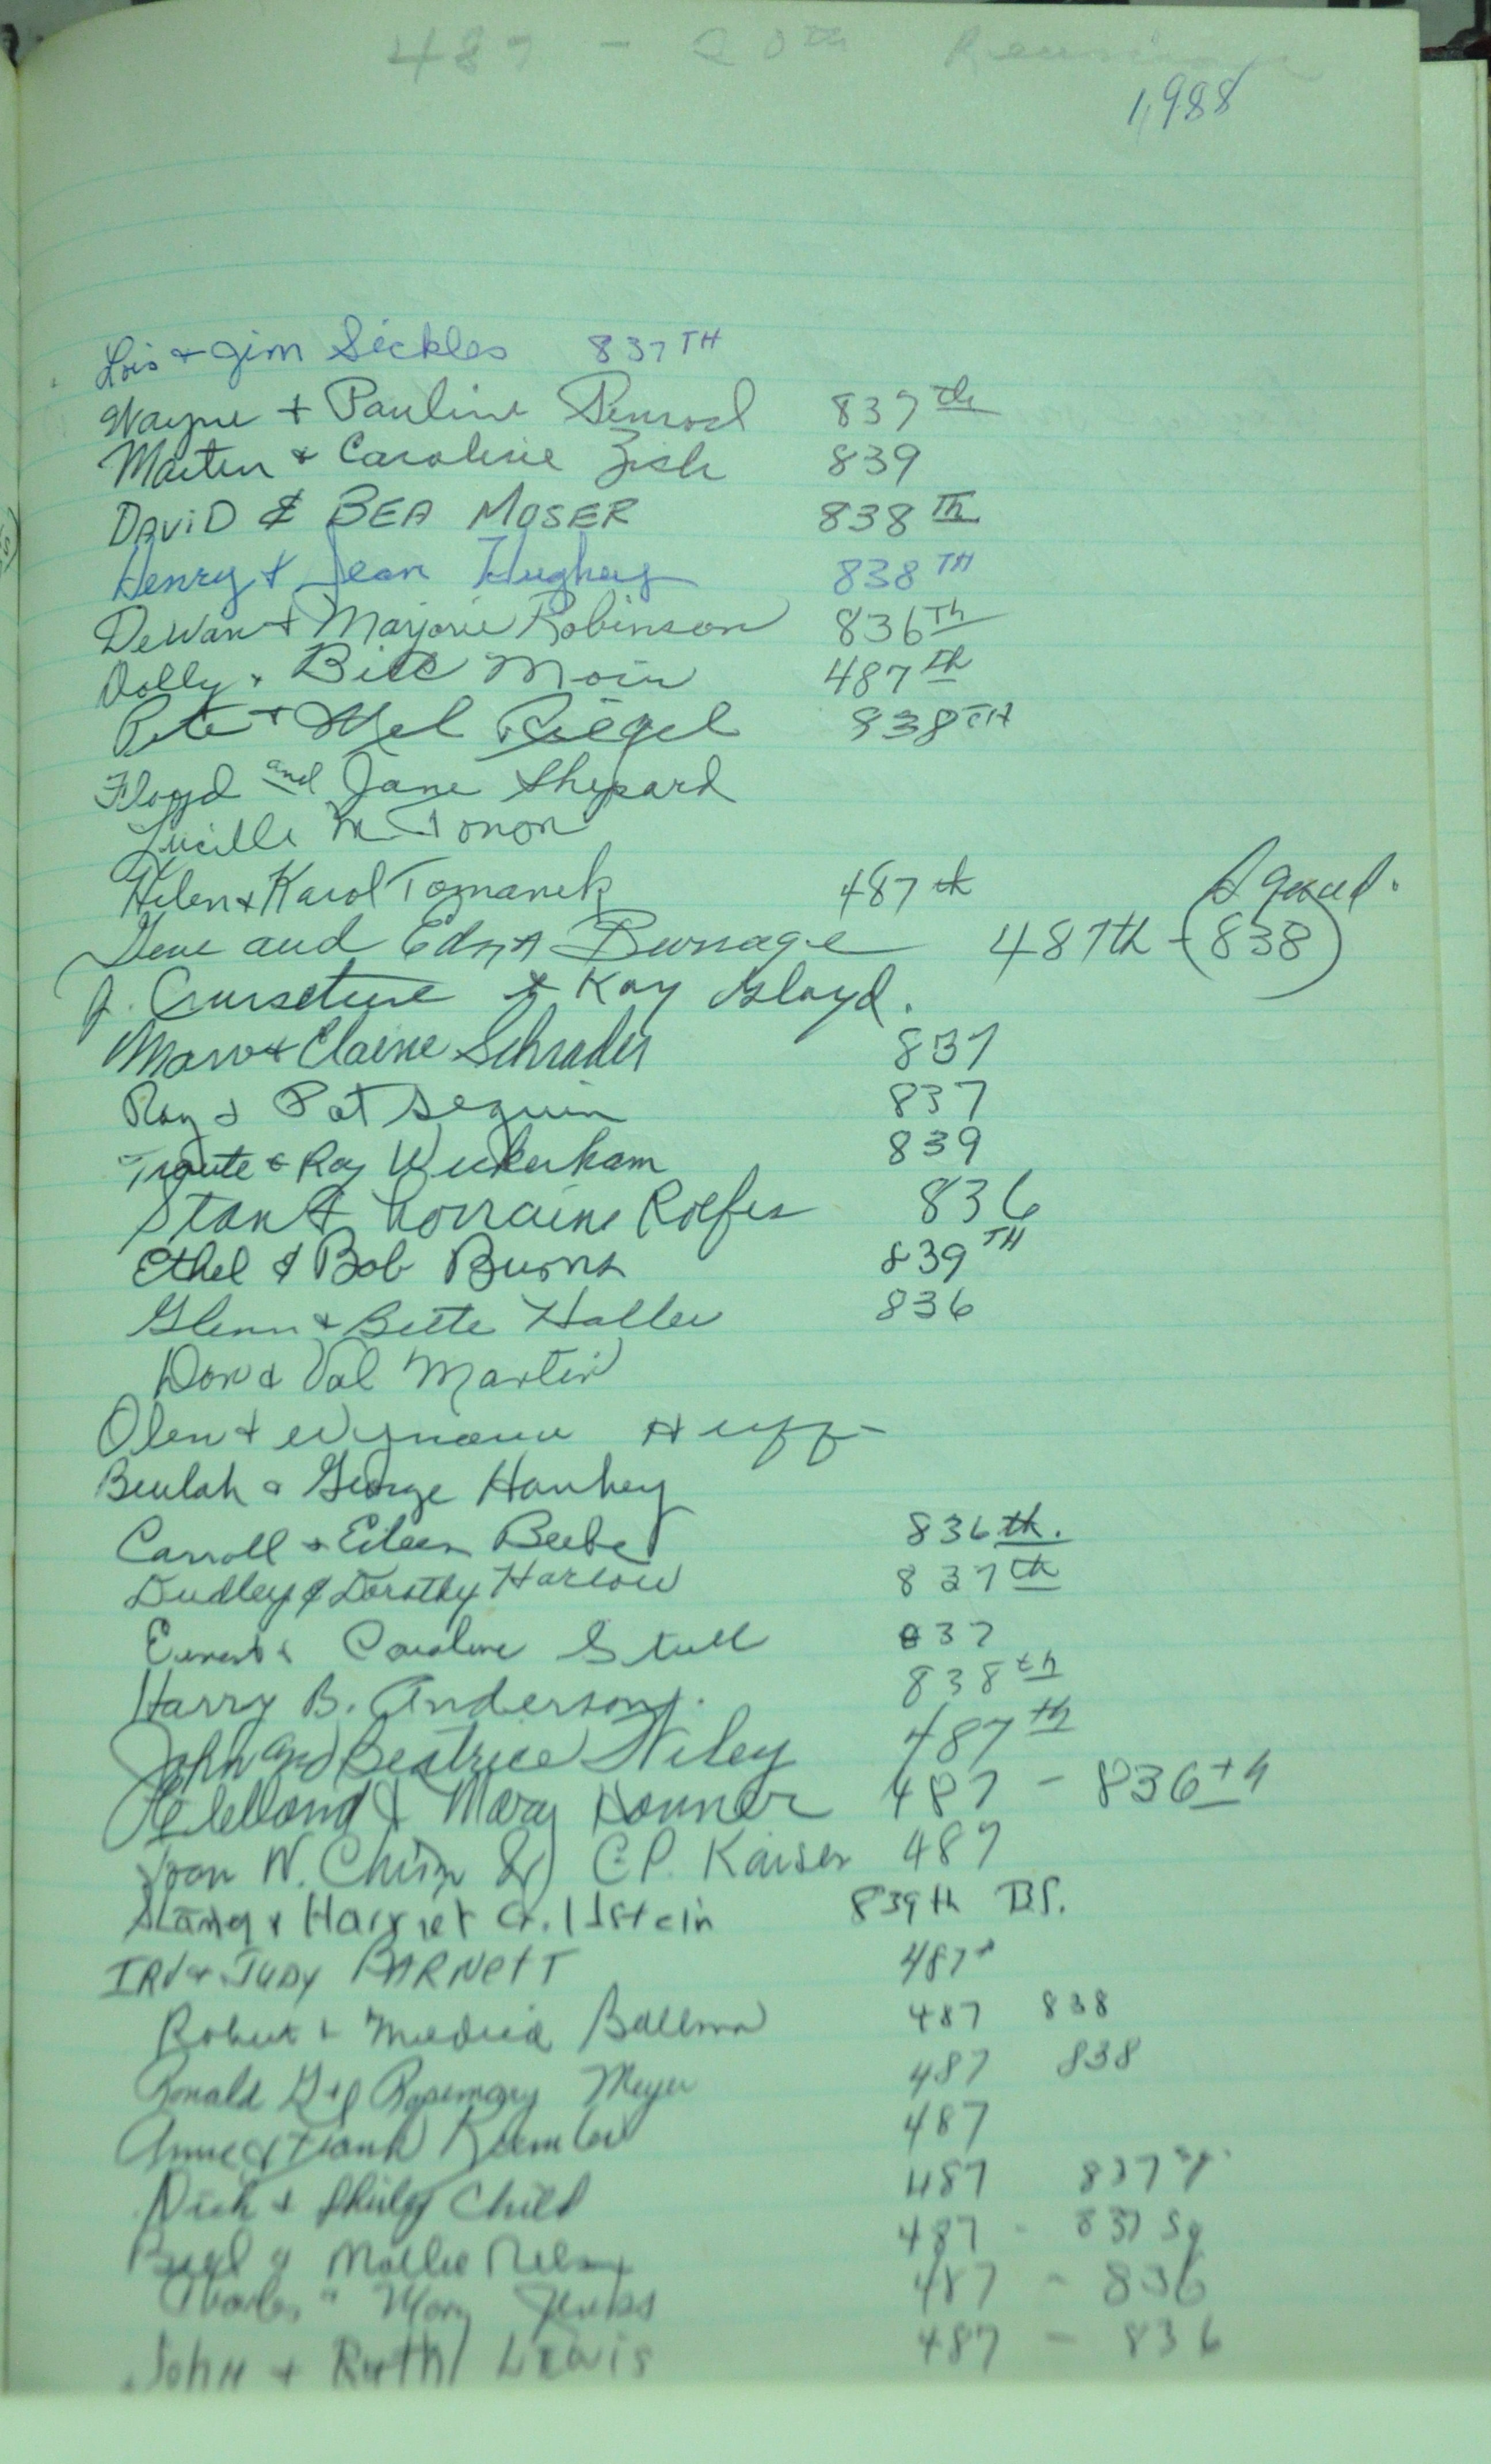 487 - 20th Reunion
1988
Lois + Jim Sickles 837TH
Wayne + Pauline Penrod 837th
Martin + Caroline Zish 839
DAVID & BEA MOSER 838Th
Henry + Jean Hughey 838TH
DeWan + Marjorie Robinson 836Th
Dolly + Bill Moir 487th
Pete + Mel Riegel 838TH
Floyd and Jane Shepard
Lucille M Tonon
Helen + Karol Tomanek 487th
Squad.
Gene and Edna Burrage 487th - (838)
J. & Kay Gloyd.
Marv + Elaine Schrader 837
Ray & Pat Seguin 837
Traute & Ray Wickerham 839
Stan & Lorraine Rolfes 836
Ethel & Bob Burns 839TH
Glenn + Bette Haller 836
Don & Val Martin
Olen + Huff
Beulah & George Hanhey
Carroll + Eileen Beebe 836th.
Dudley & Dorothy Harlow 837th
Ernest & Caroline Stull 837
Harry B. Anderson. 838th
John and Beatrice Wiley 487th
& Mary Konner 487 - 836th
Joan W. Chism & C.P. Kaiser 487
Harriet Gillstein 839th BS.
IRV & JUDY BARNETT 487
Robert + Mildred Ballman 487 838
Ronald G & Rosemary Meyer 487 838
Anne & Frank 487
Dick + Child 487 837
& Mollie Nelson 487 - 837 Sq
Charles " Mary 487 - 836
John + Ruth Lewis 487 - 836